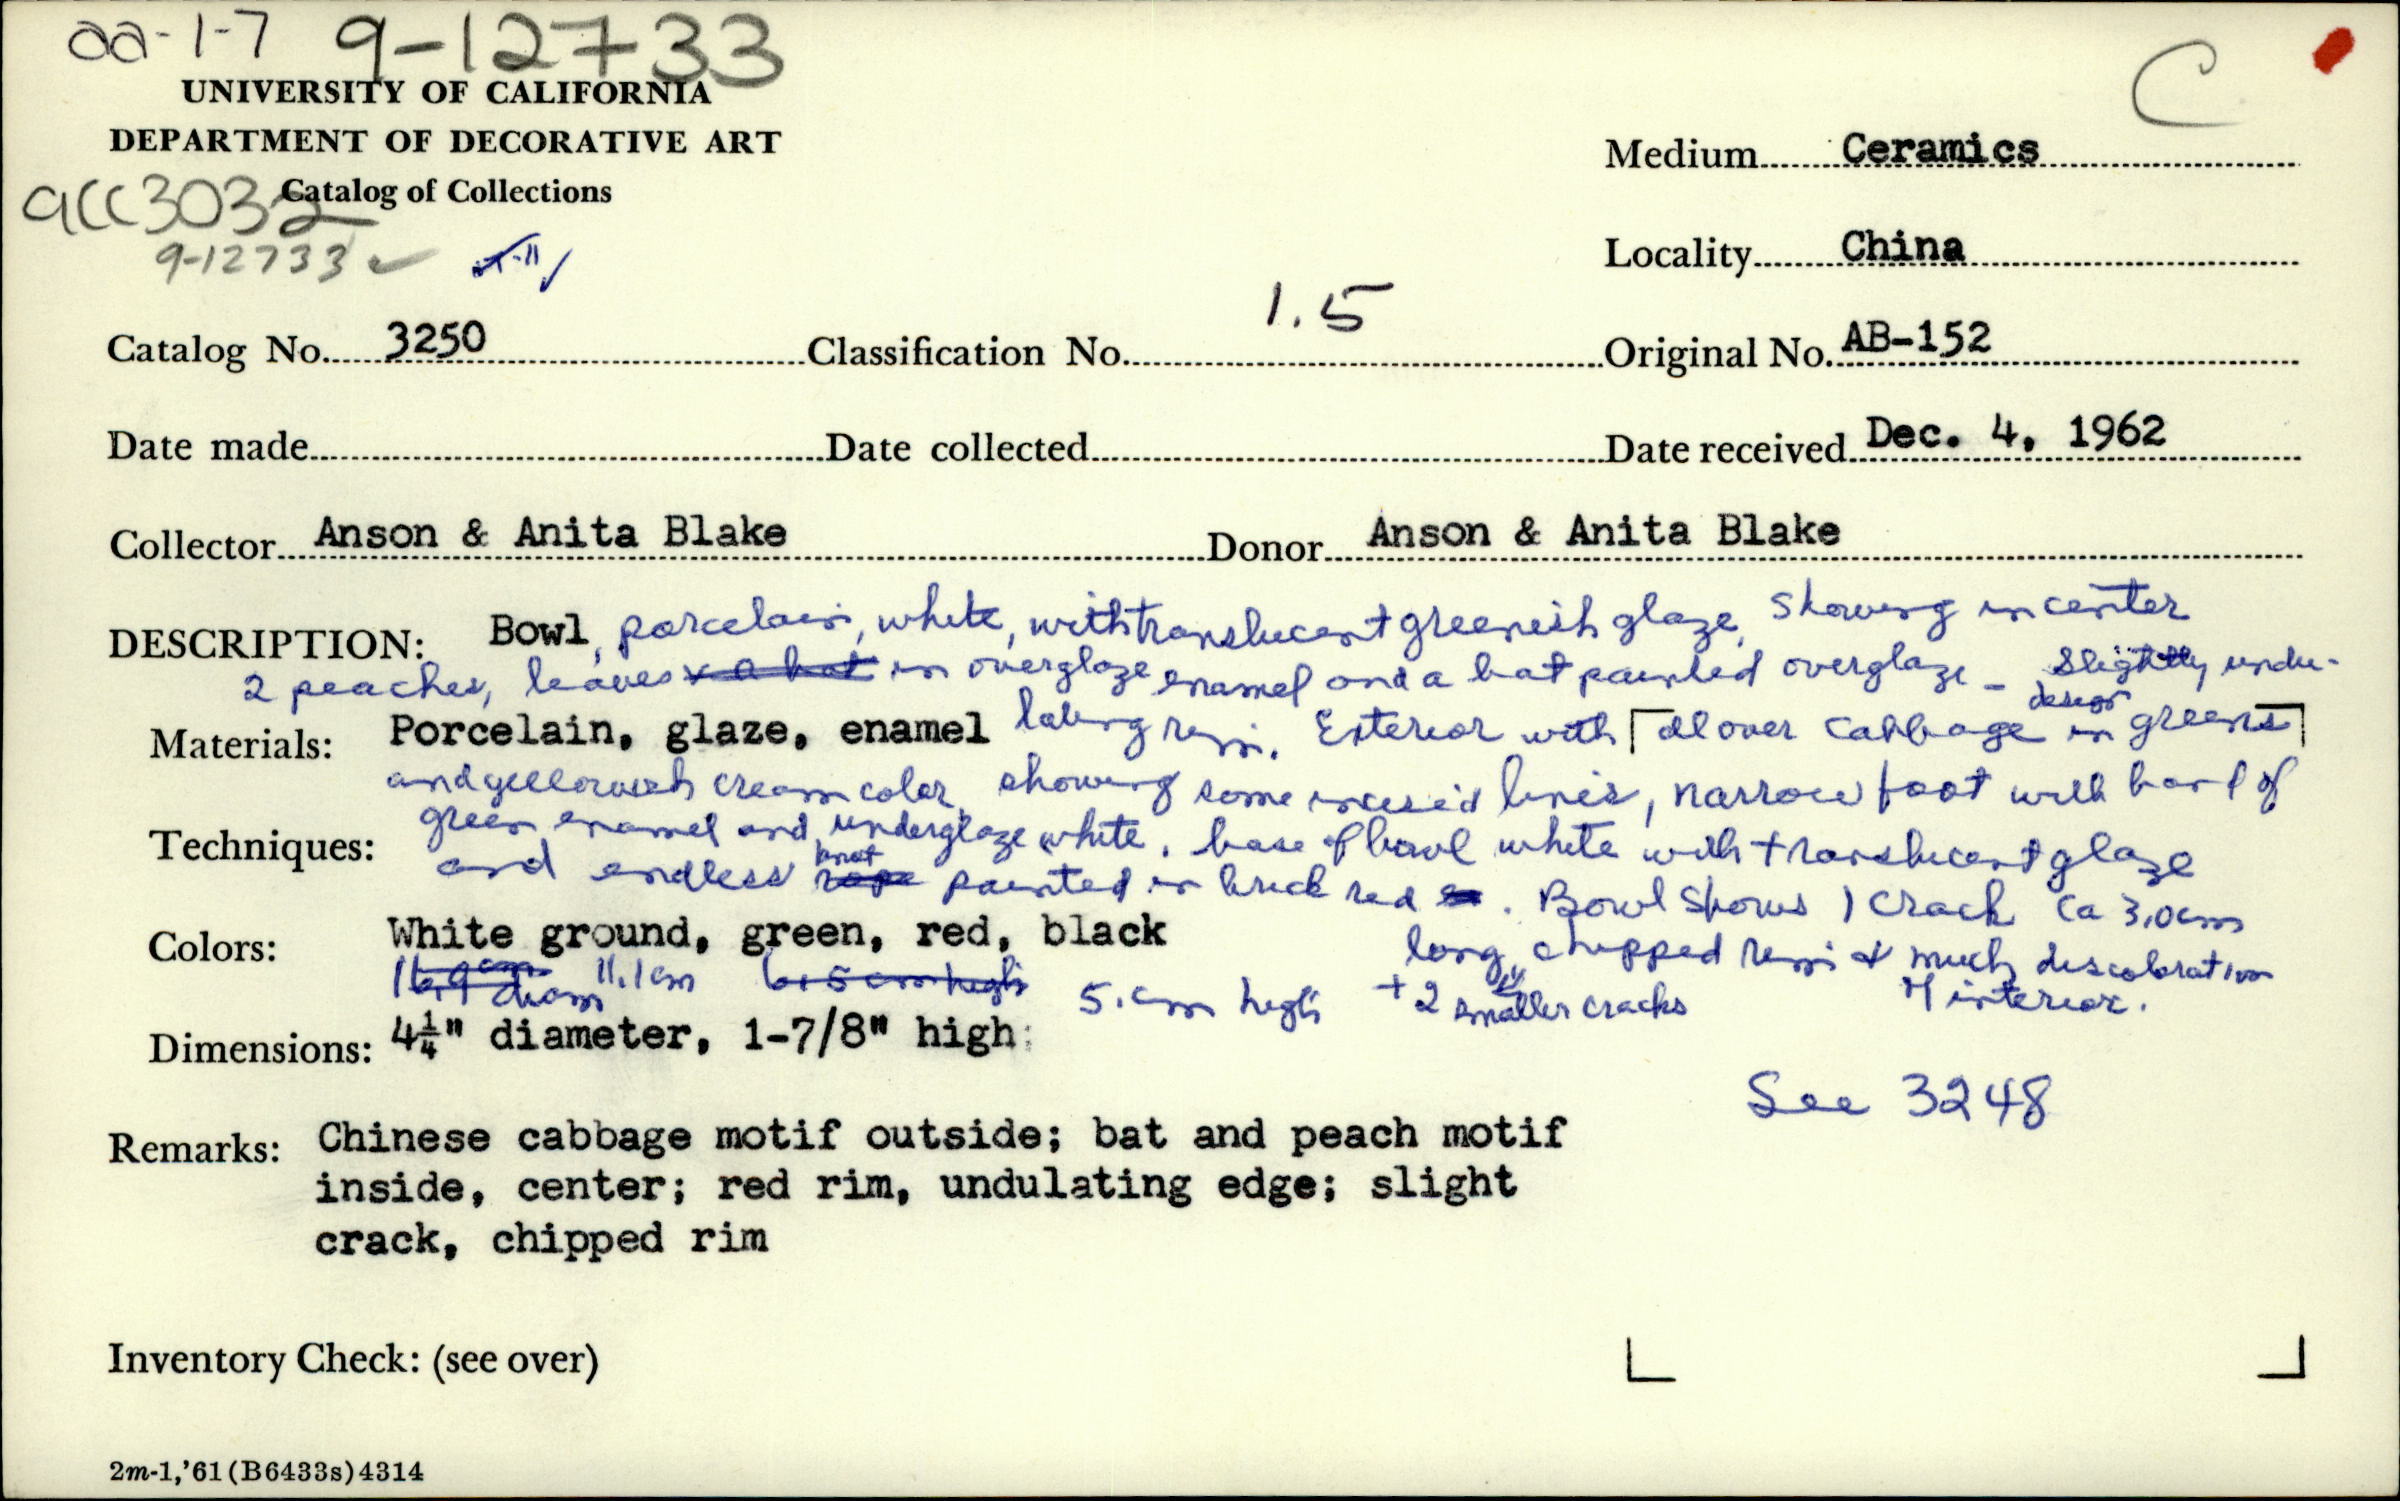 aa-1-7 9-12733
UNIVERSITY OF CALIFORNIA
DEPARTMENT OF DECORATIVE ART
Catalog of Collections
acc3032
9-12733 ✓
C
Medium Ceramics
Locality China
1.5
Catalog No. 3250 Classification No. Original No. AB-152
Date made Date collected Date received Dec. 4, 1962
Collector Anson & Anita Blake Donor Anson & Anita Blake
DESCRIPTION: Bowl, porcelain, white, with translucent greenish glaze, showing in center
2 peaches, leaves & a bat in overglaze enamel and a bat painted overglaze - Slightly undu-
Materials: Porcelain, glaze, enamel lating rim. Exterior with all over cabbage design in greens
and yellowish cream color, showing some incised lines, narrow foot with band of
Techniques: green enamel and underglaze white. base of bowl white with translucent glaze
and endless rope knot painted in brick red. Bowl shows 1 crack ca 3.0cm
Colors: White ground, green, red, black long, chipped rim & much discoloration
16.9 cm diam 11.1cm 6.5 cm high 5. cm high + 2 smaller cracks of interior.
Dimensions: 4¼" diameter, 1-7/8" high
See 3248
Remarks: Chinese cabbage motif outside; bat and peach motif
inside, center; red rim, undulating edge; slight
crack, chipped rim
Inventory Check: (see over)
2m-1,'61(B6433s)4314